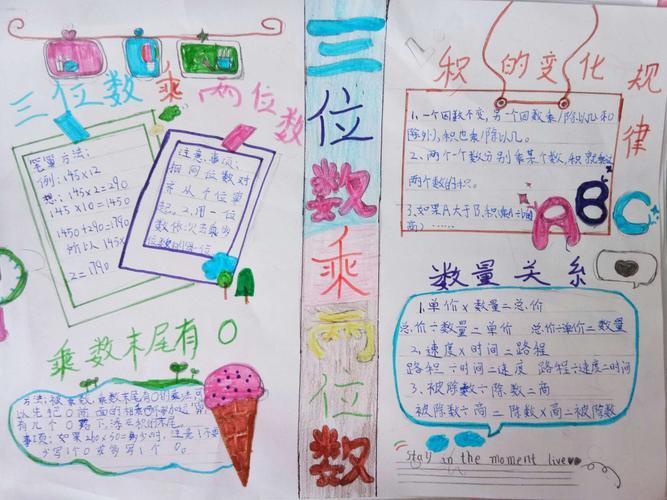 三位数乘两位数
笔算方法:
例:145×12
想:145×2=290
145×10=1450
1450+290=1740
所以145×
2=1740
注意事项:
相同位数对
齐从个位算
起,2.用一位
数依次去乘
三位数乘两位数
乘数末尾有0
方法:被乘数、乘数末尾有0的乘法,可
以先把0前面的相乘,
有几个0落下,添在积的末尾。
事项:如果260×50=多少时,注意了不要
少写1个0或多写1个0。
积的变化规律
1、一个因数不变,另一个因数乘/除以几(0
除外),积也乘/除以几。
2、两个一个数分别乘某个数,积就乘
两个数的积。
3.如果A大于B,积
ABC
数量关系
1.单价×数量=总价
总价÷数量=单价 总价÷单价=数量
2.速度×时间=路程
路程÷时间=速度 路程÷速度=时间
3.被除数÷除数=商
被除数÷商=除数×商=被除数
stay in the moment live